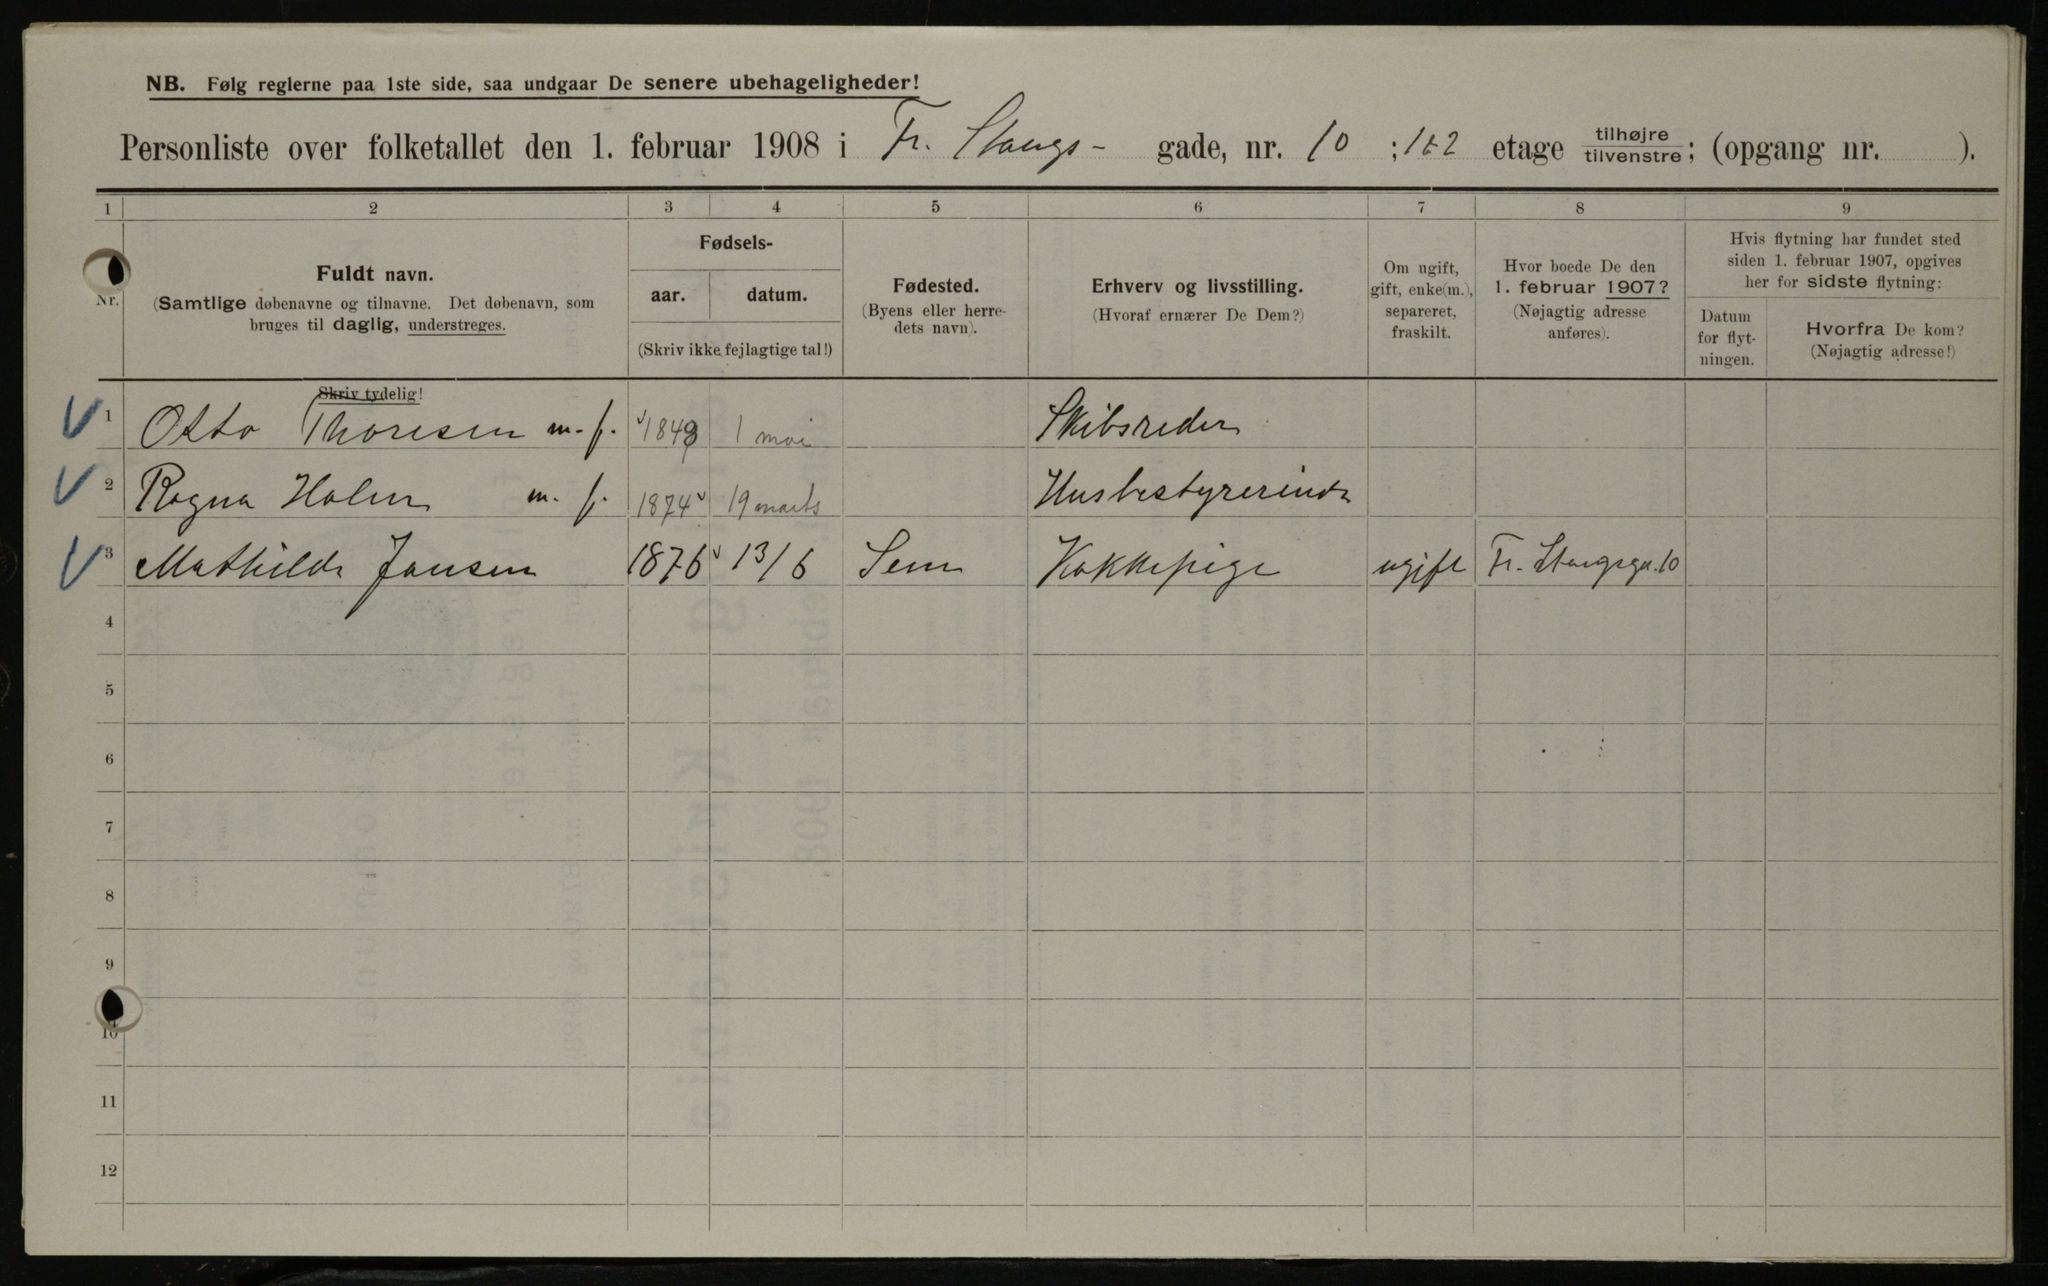 NB. Følg reglerne paa 1ste side, saa undgaar De senere ubehageligheder!
Personliste over folketallet den 1. februar 1908 i Fr. Stangs- gade, nr. 10 ; 1&2 etage tilhøjre tilvenstre; (opgang nr. ).
1 2 3 4 5 6 7 8 9
Nr.
Fuldt navn.
(Samtlige døbenavne og tilnavne. Det døbenavn, som
bruges til daglig, understreges.
Skriv tydelig!
Fødsels-
aar. datum.
(Skriv ikke fejlagtige tal!)
Fødested.
(Byens eller herre-
dets navn).
Erhverv og livsstilling.
(Hvoraf ernærer De Dem?)
Om ugift,
gift, enke(m.),
separeret,
fraskilt.
Hvor boede De den
1. februar 1907?
(Nøjagtig adresse
anføres).
Hvis flytning har fundet sted
siden 1. februar 1907, opgives
her for sidste flytning:
Datum
for flyt-
ningen.
Hvorfra De kom?
(Nøjagtig adresse!)
1 Otto Thoresen m. f. 1849 1 mai Skibsreder
2 Ragna Holm m. f. 1874 19 marts Husbestyrerinde
3 Mathilde Jansen 1876 13/6 Sem Kokkepige ugift Fr. Stangsga. 10
4
5
6
7
8
9
10
11
12